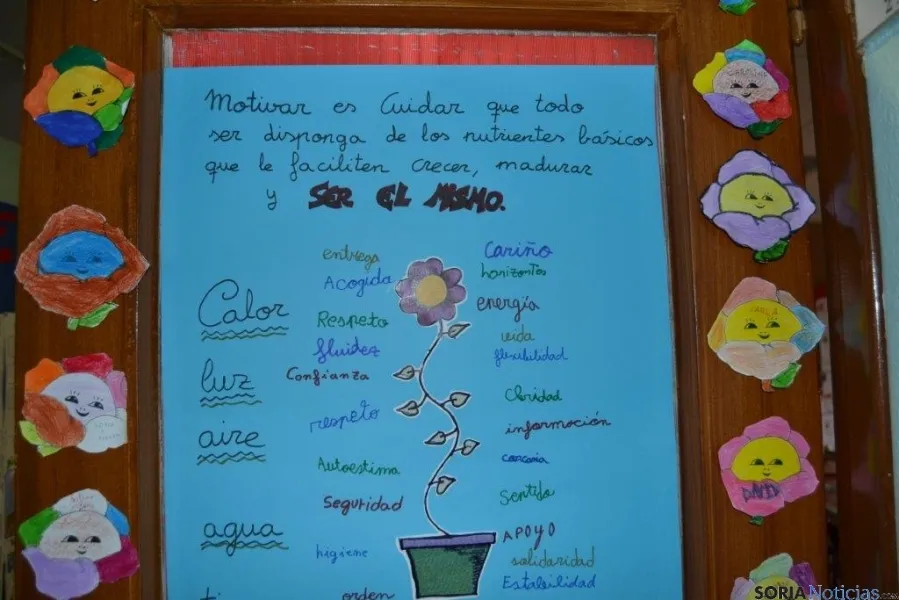 Motivar es Cuidar que todo
ser disponga de los nutrientes básicos
que le faciliten crecer, madurar
y SER EL MISMO.
entrega
Cariño
Acogida
horizontes
Calor
energía
Respeto
vida
fluidez
flexibilidad
luz
Confianza
Claridad
respeto
información
aire
cercania
Autoestima
Sentido
Seguridad
agua
APOYO
higiene
solidaridad
Estabilidad
orden
CAROLINA
DAVID
SORIANoticias.com